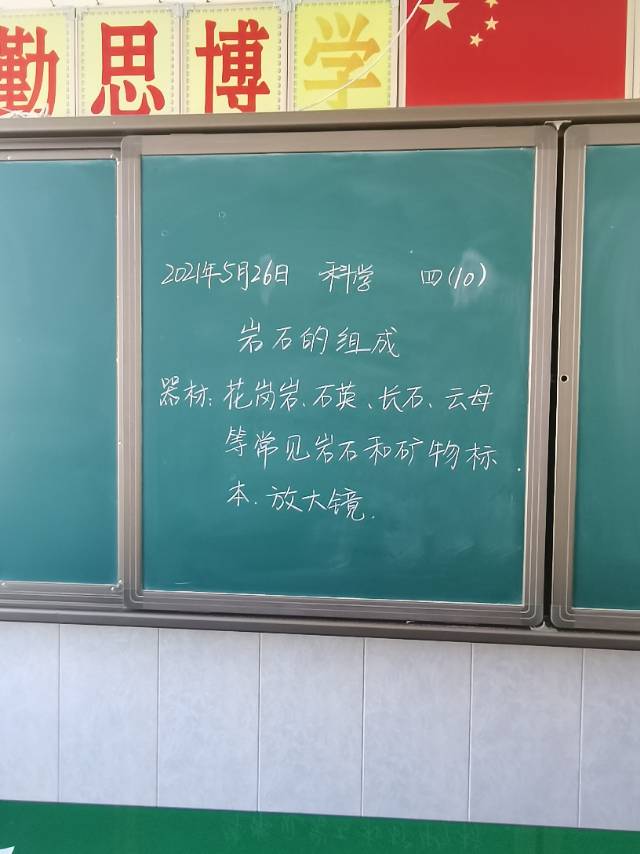 勤思博学
2021年5月26日 科学 四(10)
岩石的组成
器材：花岗岩、石英、长石、云母
等常见岩石和矿物标
本.放大镜.